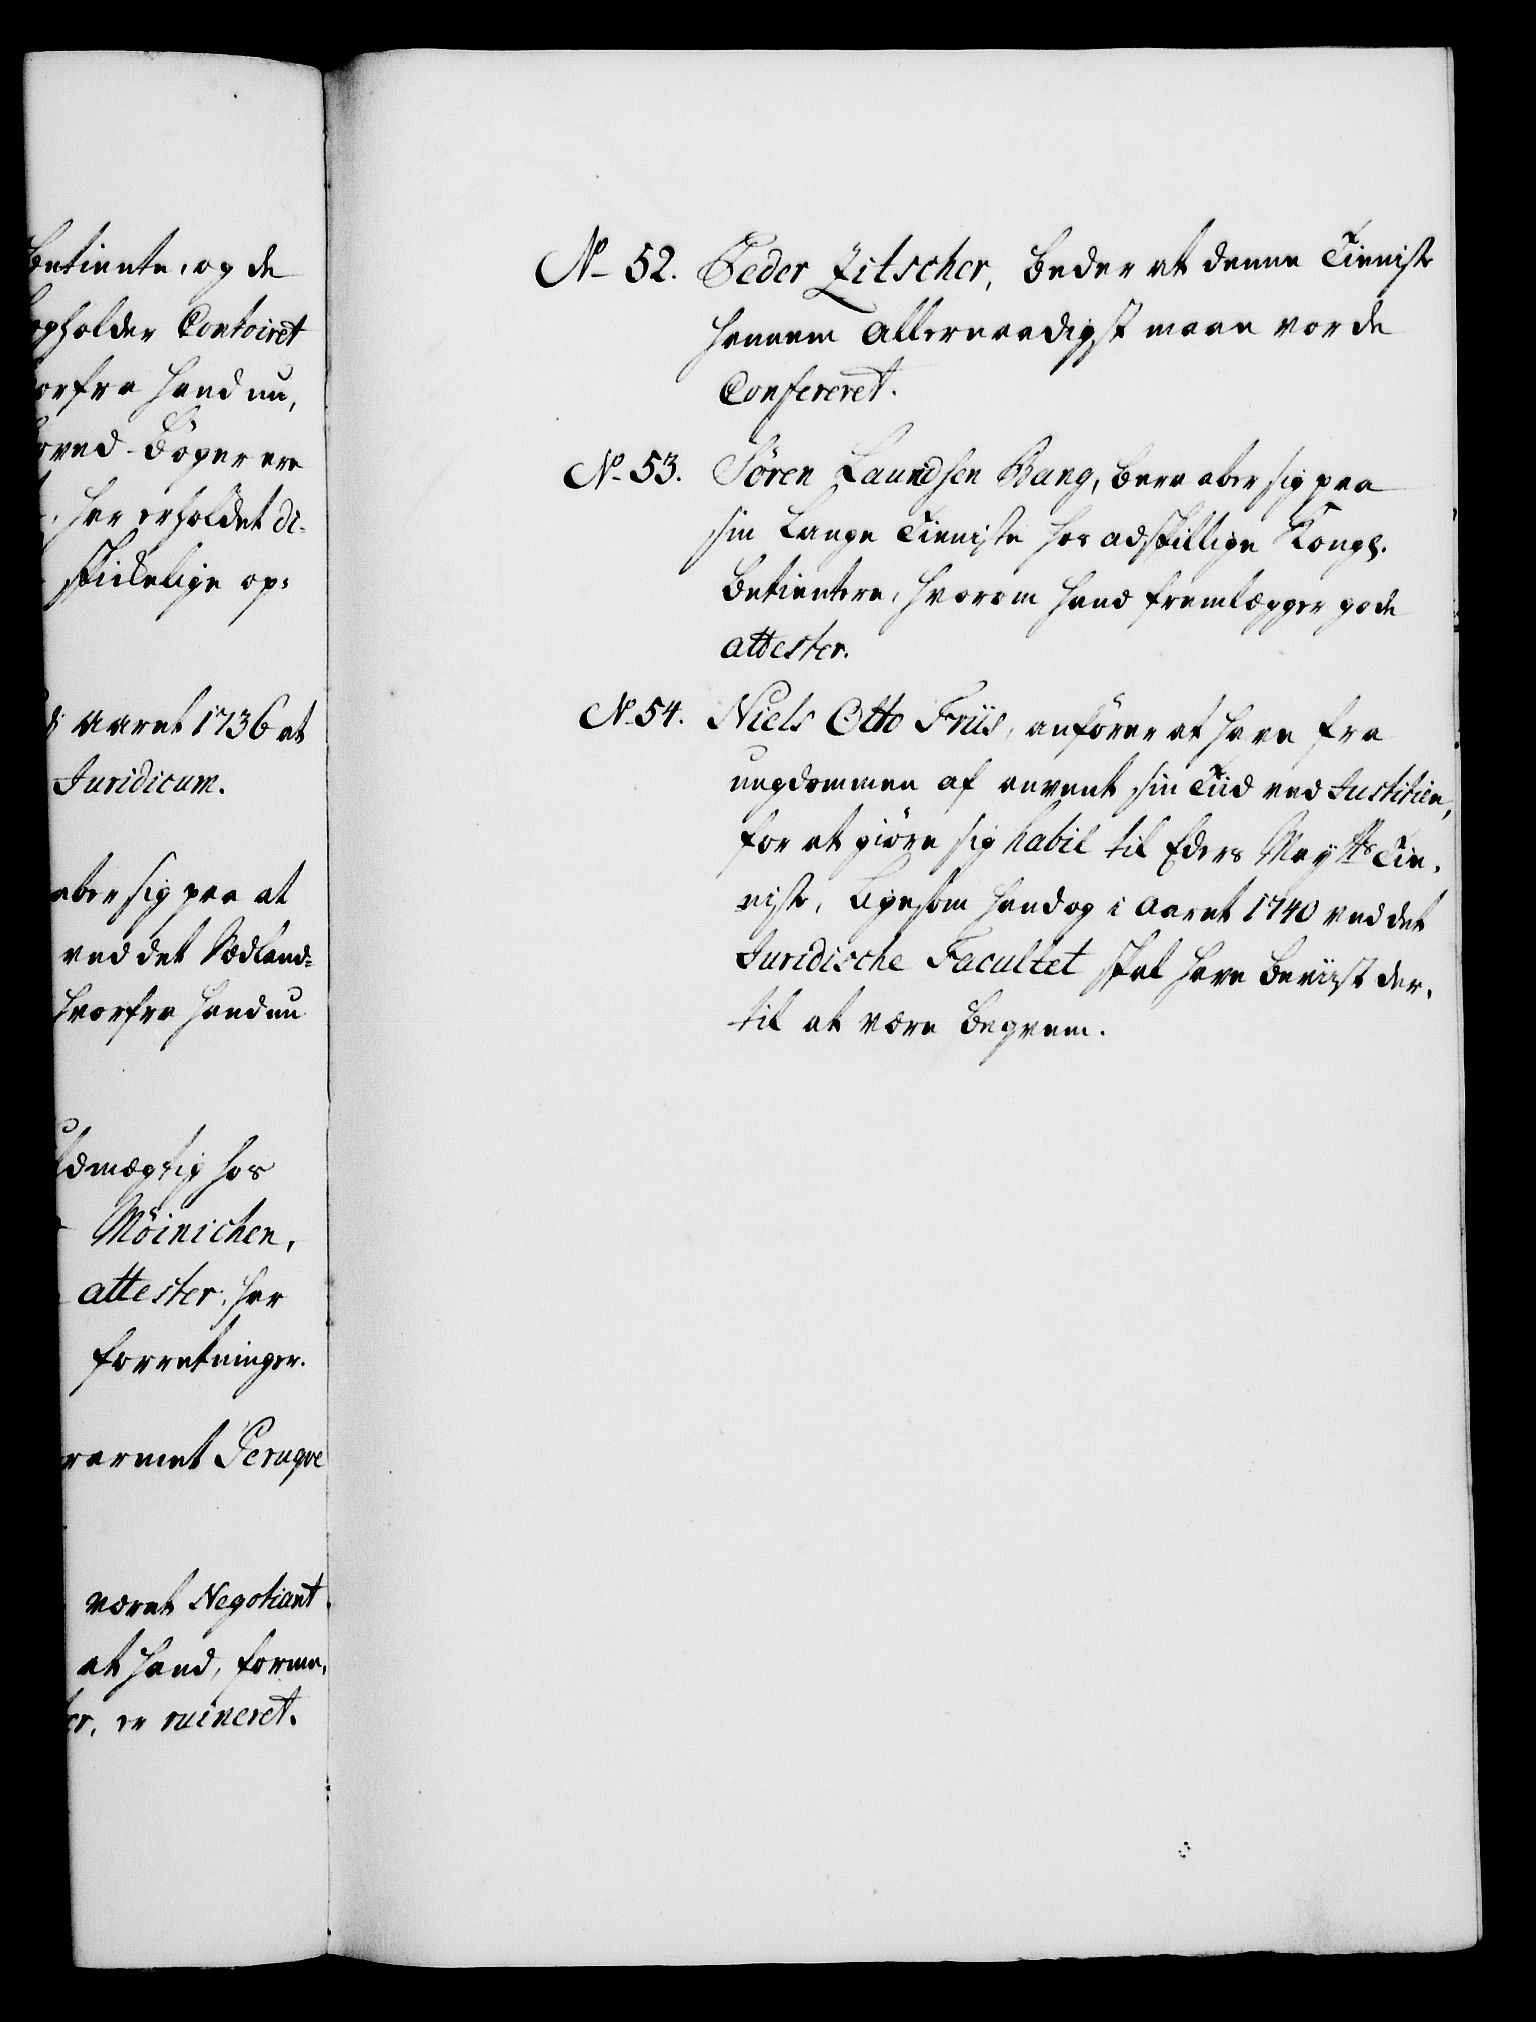 Betiente, og de
opholder Contoiret
orfra hand nu,
oved-Bøger ere
, har erholdet di-
skickelige op:
Aaret 1736 at
Juridicum.
aber sig paa at
ved det Sædland=
hvorfra hand nu
ldmægtig hos
Möinichen,
attester, har
forretninger.
rarmet Peruqve
været Negotiant
at hand, forme,
er, er ruineret.
No 52. Peder Zitscher, beder at denne Tieniste
hannem Allernaadigst maae vorde
Confereret.
No 53. Søren Lauridsen Bang, beraaber sig paa
sin lange Tieniste hos adskillige Kongl.
Betientere, hvorom hand fremlægger gode
attester.
No 54. Niels Otto Friis, anfører at have fra
ungdommen af anvent sin Tiid ved Justitien,
for at giøre sig habil til Eders Mayts Tie,
niste, Ligesom hand og i Aaret 1740 ved det
Juridische Facultet skal have beviist der,
til at være beqvem.